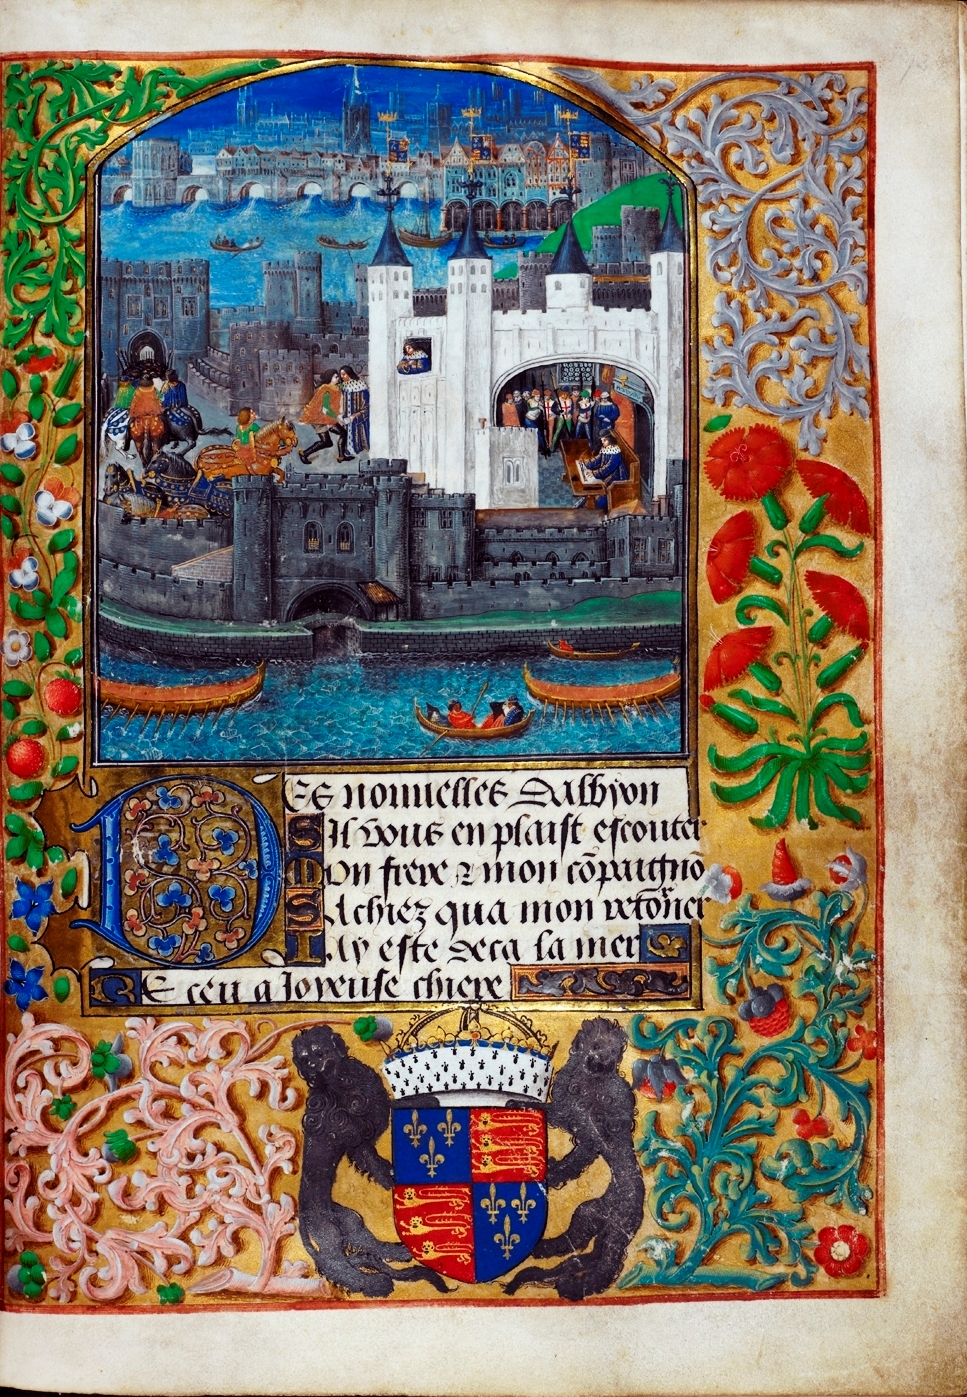 Des nouuelles Dalbyon
Sil vous en plaist escouter
Mon frere & mon cōpaignō
Sachiez qua mon retōrner
Jay este deca la mer
Receu a Joyeuse chiere